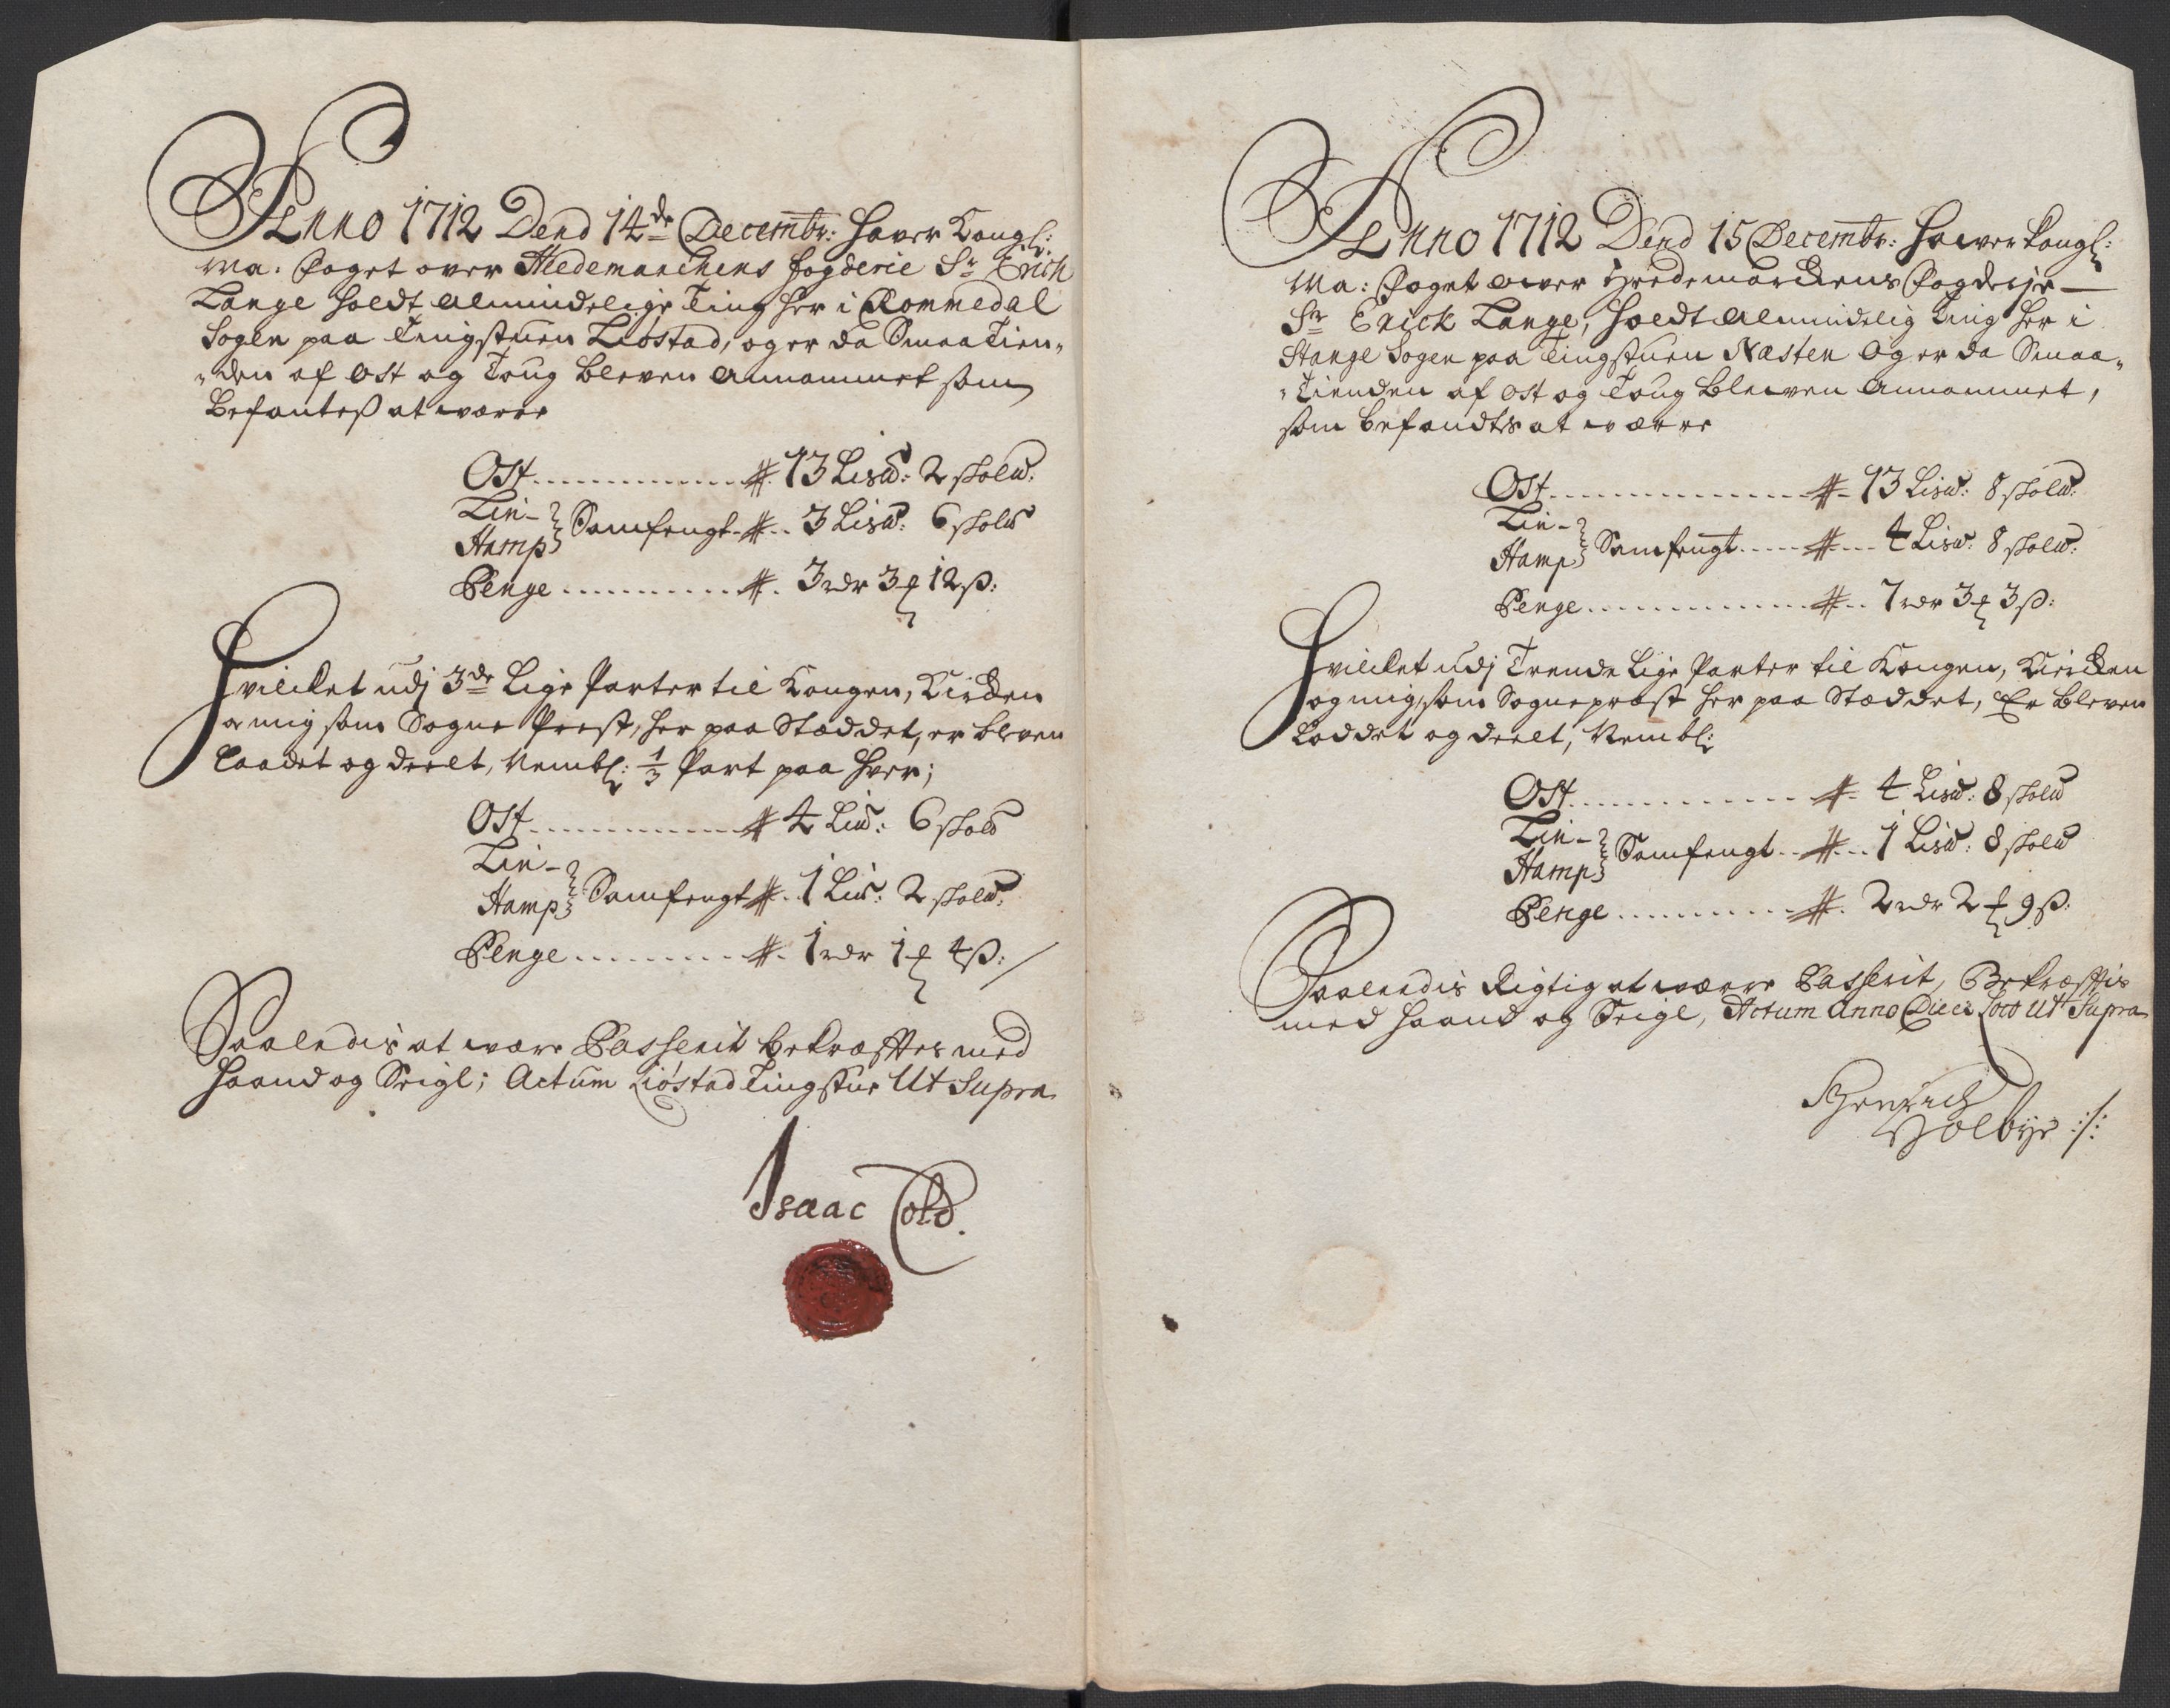 Anno 1712 Dend 14de Decembr: haver Kongl:
Ma: Foget over Hedemarchens fogderie Sr Erich
Lange holdt Almindelige Ting her i Rommedal
Sogen paa Tingstuen Liøstad, og er da Smaa Tien„
„den af Ost og Toug bleven Annammet som
befantes at være
Ost 13 Lis℔: 2 skol℔:
Lin-
Hamp Samfengt 3 Lis℔: 6 skol℔
Penge 3 rdr 3 ƒ 12 ß:
Hvilcket udj 3de Lige Parter til Kongen, Kircken
og mig som Sogne Prest, her paa Stæddet, er bleven
laadet og deelt, Nembl: 1/3 Part paa hver;
Ost 4 Li℔: 6 skol℔
Lin-
Hamp Samfengt 1 Li℔: 2 skol℔:
Penge 1 rdr 1 ƒ 4 ß:
Saaledis at være Passerit bekræfftes med
haand og Seigl; Actum Liøstad Tingstue Ut Supra
Isaac Cold.
Anno 1712 Dend 15 Decembr: hawer Kongl:
Ma: Foget ower Hedemarckens Fogderje
Sr Erick Lange, holdt Almindelig Ting her i
Stange Sogen paa Tingstuen Næsten og er da Smaa„
„Tienden af Ost og Toug blewen Annammet,
som befandtes at wære
Ost 13 Lis℔: 8 skol℔:
Lin-
Hamp Samfengt 4 Lis℔: 8 skol℔:
Penge 7 rdr 3 ƒ 3 ß:
Hvilcket udj Trende Lige Parter til Kongen, Kircken
og mig, som Sognepræst her paa Stæddet, Er bleven
Loddet og deelt, Nembl:
Ost 4 Lis℔: 8 skol℔
Lin-
Hamp Samfengt 1 Lis℔: 8 skol℔
Penge 2 rdr 2 ƒ 9 ß:
Saaledis Rigtig at wære Passerit, Bekræfftis
med haand og Seigl, Actum Anno Die et Loco Ut Supra
Henrich
Holbye